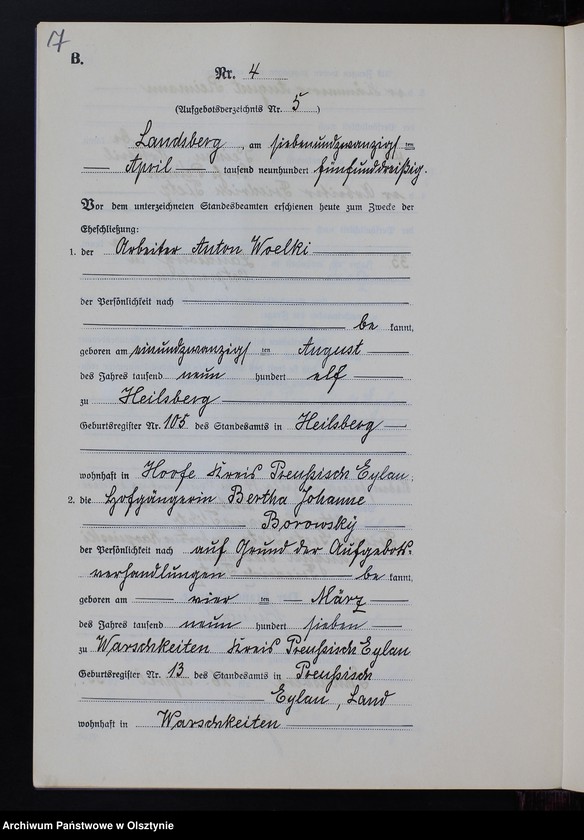 17
B.
Nr. 4
(Aufgebotsverzeichnis Nr. 5)
Landsberg, am siebenundzwanzigsten
April tausend neunhundert fünfunddreißig.
Vor dem unterzeichneten Standesbeamten erschienen heute zum Zwecke der
Eheschließung:
1. der Arbeiter Anton Woelki
der Persönlichkeit nach
bekannt,
geboren am einundzwanzigsten August
des Jahres tausend neun hundert elf
zu Heilsberg
Geburtsregister Nr. 105 des Standesamts in Heilsberg
wohnhaft in Hoofe Kreis Preußisch Eylau.
2. die Hofgängerin Bertha Johanne
Borowsky
der Persönlichkeit nach auf Grund der Aufgebots-
verhandlungen bekannt,
geboren am vierten März
des Jahres tausend neun hundert sieben
zu Warschkeiten Kreis Preußisch Eylau
Geburtsregister Nr. 13 des Standesamts in Preußisch
Eylau, Land
wohnhaft in Warschkeiten
Archiwum Państwowe w Olsztynie